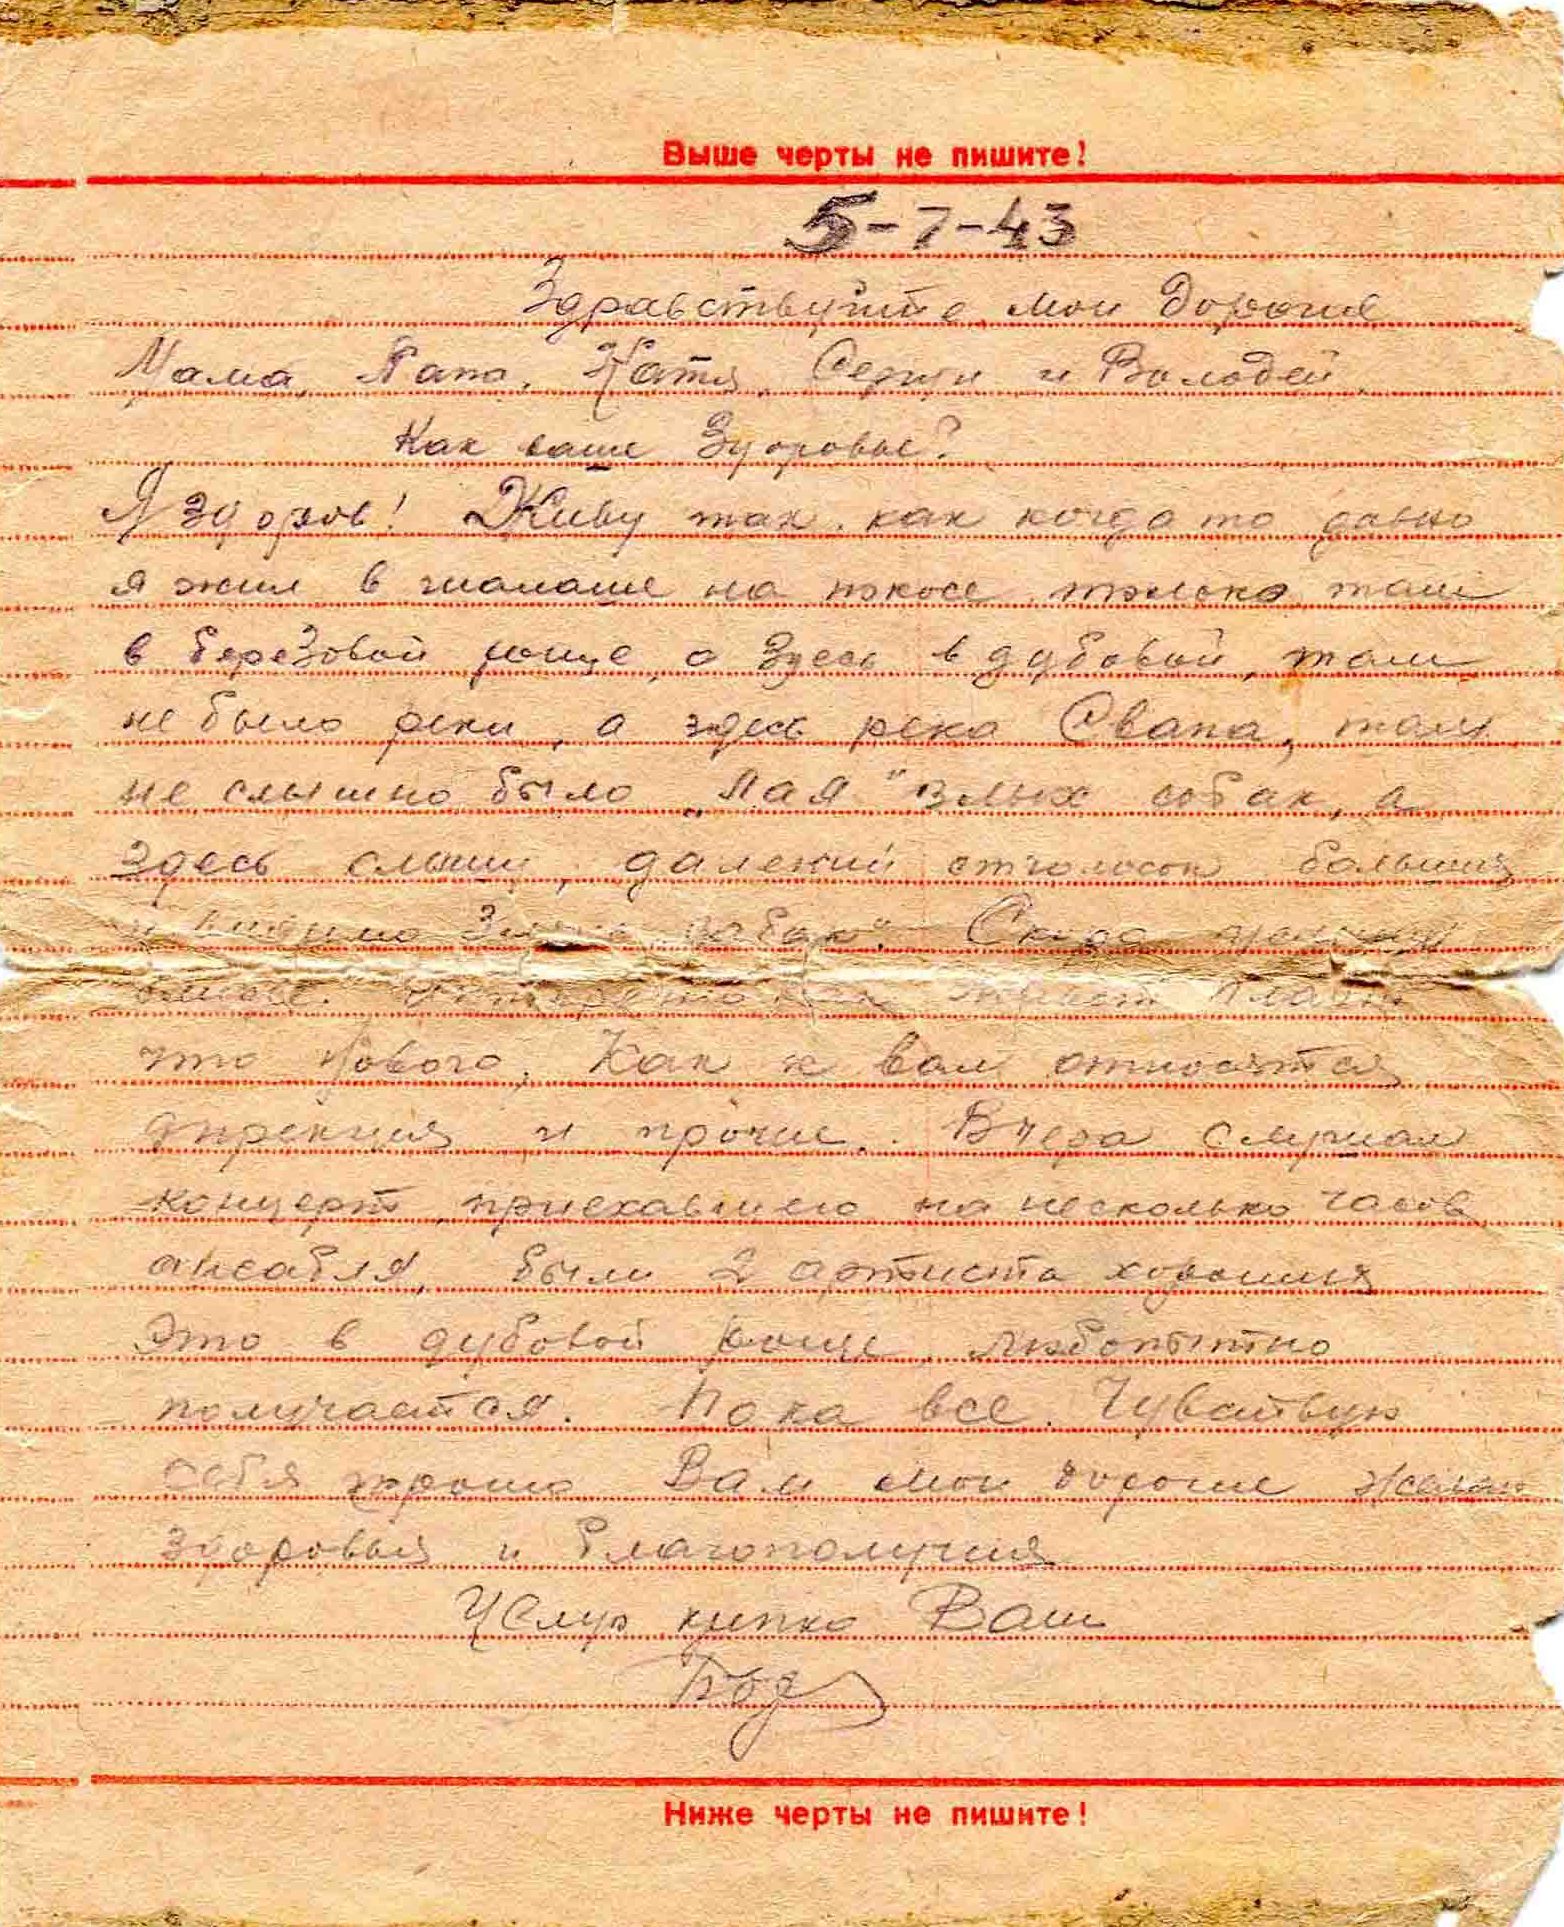 Выше черты не пишите!
5-7-43
Здравствуйте мои дорогия
Мама, Папа, Катя, Сергей и Володей.
Как ваше Здоровье?
Я здоров! Живу так, как когда то давно
я жил в шалаше на покосе только там
в березовой роще, а здесь в дубовой, там
не было реки, а здесь река Свапа, там
не слышно было "Лая" злых собак, а
здесь слышу, далекий отголосок больших
и злых "собак". Скоро
живет
что нового, Как к вам относятся
дирекция и прочие. Вчера слушал
концерт, приехавшего на несколько часов
ансабля, были 2 артиста хороших
Это в дубовой роще, любопытно
получается. Пока все. Чувствую
себя хорошо Вам мои дорогие желаю
здоровья и благополучия
Целую крепко Ваш
Ниже черты не пишите!